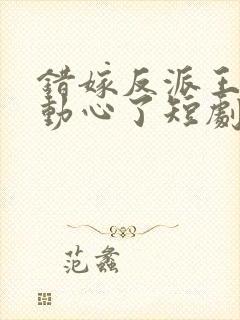 錯嫁反派王
動心了短劇
范蠡